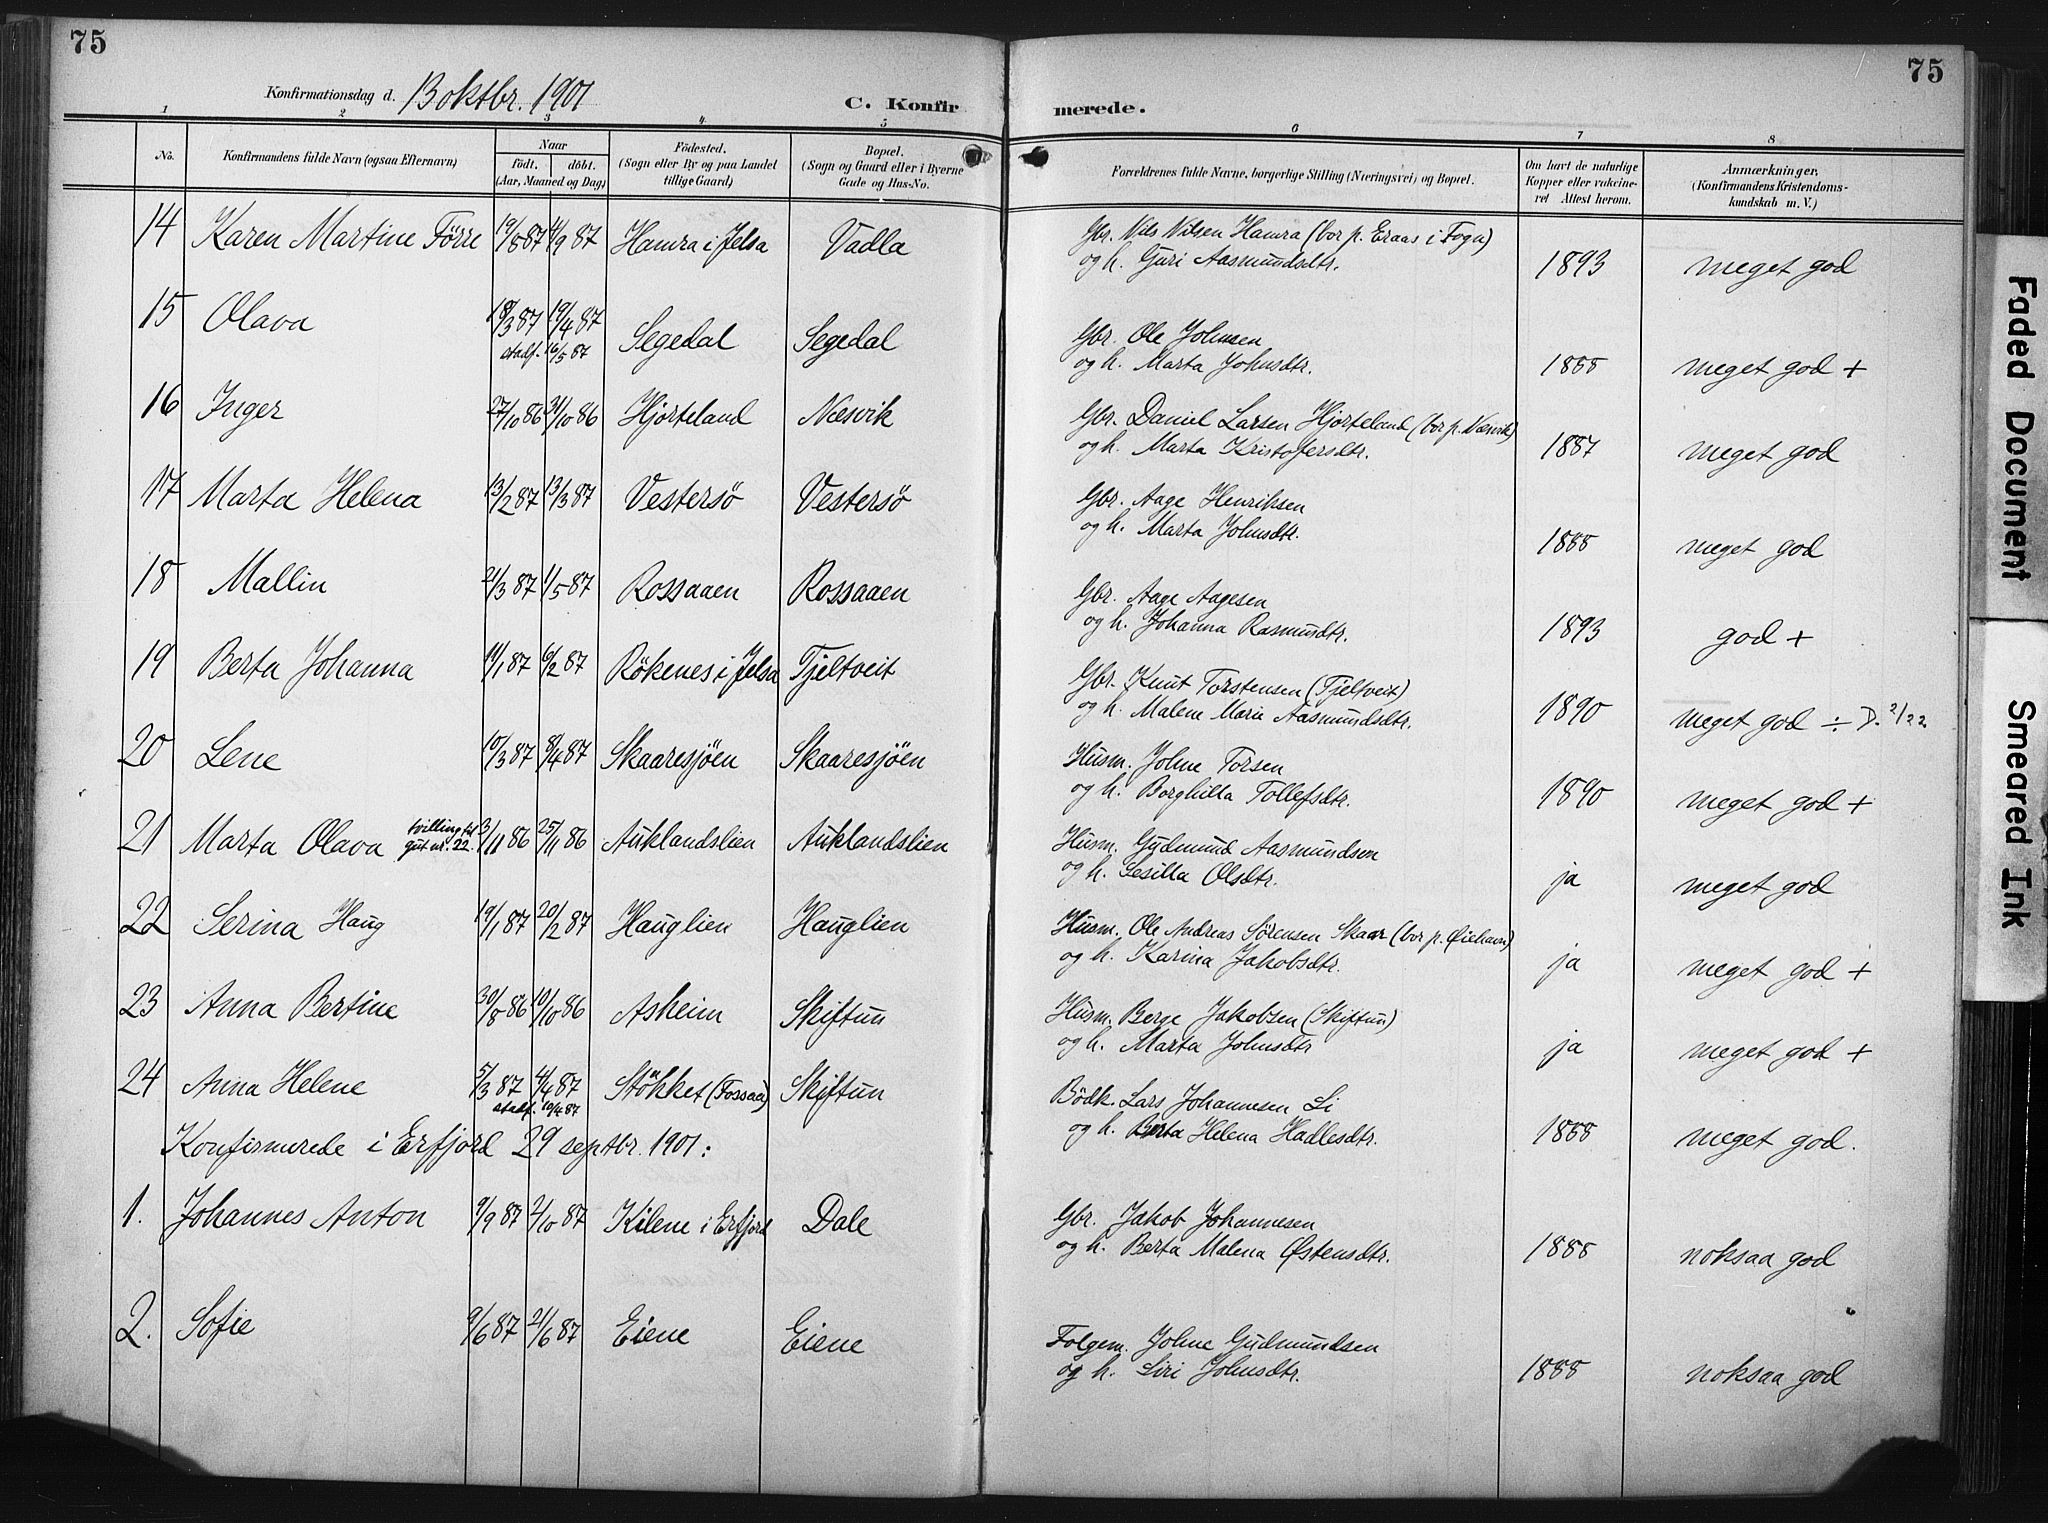 75
75
Konfirmationsdag d. 13 oktbr. 1901
C. Konfirmerede.
1 2 3 4 5 6 7 8
No.
Konfirmandens fulde Navn (ogsaa Efternavn)
Naar
født. døbt.
(Aar, Maaned og Dag)
Fødested.
(Sogn eller By og paa Landet
tillige Gaard)
Bopæl.
(Sogn og Gaard eller i Byerne
Gade og Hus-No.
Forældrenes fulde Navne, borgerlige Stilling (Næringsvei) og Bopæl.
Om havt de naturlige
Kopper eller vakcine-
ret Attest herom.
Anmærkninger.
(Konfirmandens Kristendoms-
kundskab m. V.)
14 Karen Martine Förre 19/8 87 11/9 87 Hamra i Jelsa Vadla Gbr. Nils Nilsen Hamra (bor p. Eraas i Fogn)
og h. Guri Aasmundsdtr. 1893 meget god
15 Olava 18/3 87 19/4 87 Segedal Segedal Gbr. Ole Johnsen
stadf. 16/5 87 og h. Marta Johnsdtr. 1888 meget god +
16 Inger 27/10 86 31/10 86 Hjorteland Nesvik Gbr. Daniel Larsen Hjorteland (bor p. Næsvik)
og h. Marta Kristofersdtr. 1887 meget god
17 Marta Helena 13/2 87 13/3 87 Vestersö Vestersö Gbr. Aage Henriksen
og h. Marta Johnsdtr. 1888 meget god
18 Mallin 21/3 87 1/5 87 Rossaaen Rossaaen Gbr. Aage Aagesen
og h. Johanna Rasmundtr. 1893 god +
19 Berta Johanna 11/1 87 6/2 87 Rökenes i Jelsa Tjeltveit Gbr. Knut Torstensen (Tjeltveit)
og h. Malene Marie Aasmundsdtr. 1890 meget god ÷ D. 2/22
20 Lene 10/3 87 8/4 87 Skaaresjöen Skaaresjöen Husm. Johne Torsen
og h. Borghilla Tollefsdtr. 1890 meget god +
21 Marta Olava tvilling til
gut nr. 22. 3/11 86 25/11 86 Auklandslien Auklandslien Husm. Gudmund Aasmundsen
og h. Sesilla Olsdtr. ja meget god
22 Serina Haug 19/1 87 20/2 87 Hauglien Hauglien Husm. Ole Andreas Sørensen Skaar (bor p. Øiehavn)
og h. Karina Jakobsdtr. ja meget god +
23 Anna Bertine 30/8 86 10/10 86 Asheim Skiftun Husm. Berge Jakobsen (Skiftun)
og h. Marta Johnsdtr ja meget god +
24 Anna Helene 5/3 87 4/4 87 Stökket (Fossaa) Skiftun Bödk. Lars Johannesen Li
stadf. 10/4 87 og h. Berta Helena Hadlesdtr. 1888 meget god.
Konfirmerede i Erfjord 29 septbr. 1901:
1. Johannes Anton 9/9 87 2/10 87 Kilene i Erfjord Dale Gbr. Jakob Johannesen
og h. Berta Malena Østensdtr. 1888 noksaa god
2. Sofie 9/6 87 21/6 87 Eiene Eiene Folgem. Johne Gudmundsen
og h. Siri Johnsdtr. 1888 noksaa god
Faded Document
Smeared Ink